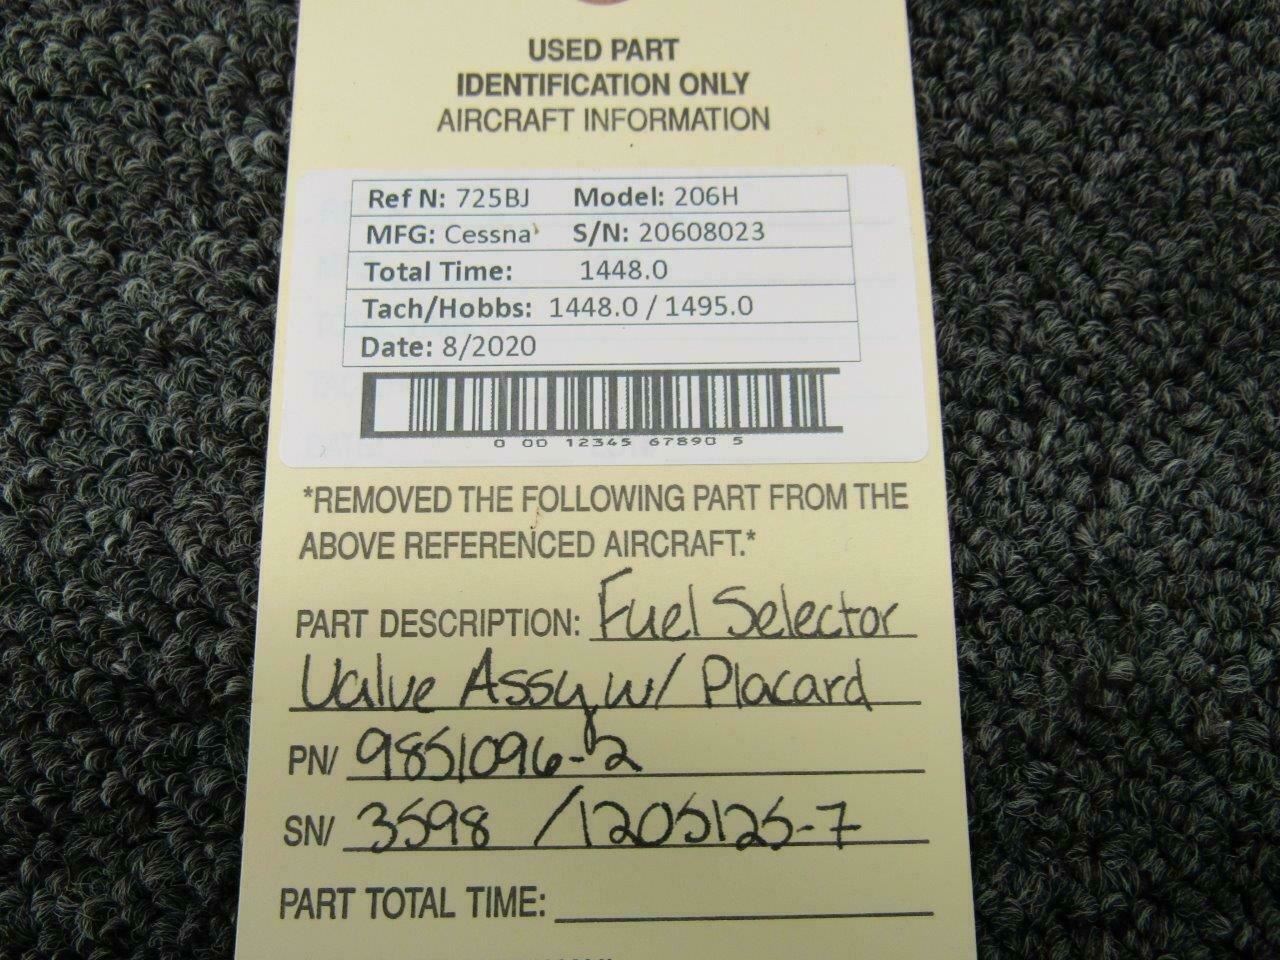 USED PART
IDENTIFICATION ONLY
AIRCRAFT INFORMATION
Ref N: 725BJ Model: 206H
MFG: Cessna S/N: 20608023
Total Time: 1448.0
Tach/Hobbs: 1448.0 / 1495.0
Date: 8/2020
0 00 12345 67890 5
*REMOVED THE FOLLOWING PART FROM THE
ABOVE REFERENCED AIRCRAFT.*
PART DESCRIPTION: Fuel Selector
Valve Assy w/ Placard
PN/ 9851096-2
SN/ 3598 /1205125-7
PART TOTAL TIME: